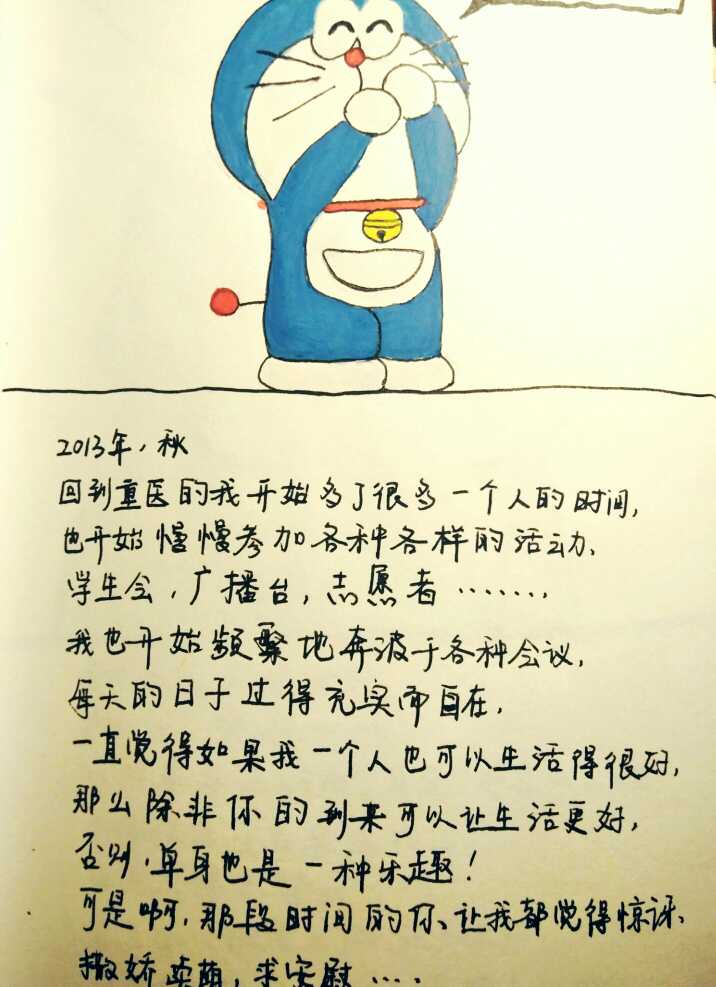 2013年，秋
回到重医的我开始多了很多一个人的时间，
也开始慢慢参加各种各样的活动、
学生会，广播台，志愿者……，
我也开始频繁地奔波于各种会议，
每天的日子过得充实而自在，
一直觉得如果我一个人也可以生活得很好，
那么除非你的到来可以让生活更好，
否则，单身也是一种乐趣！
可是啊，那段时间的你、让我都觉得惊讶、
撒娇卖萌，求安慰….